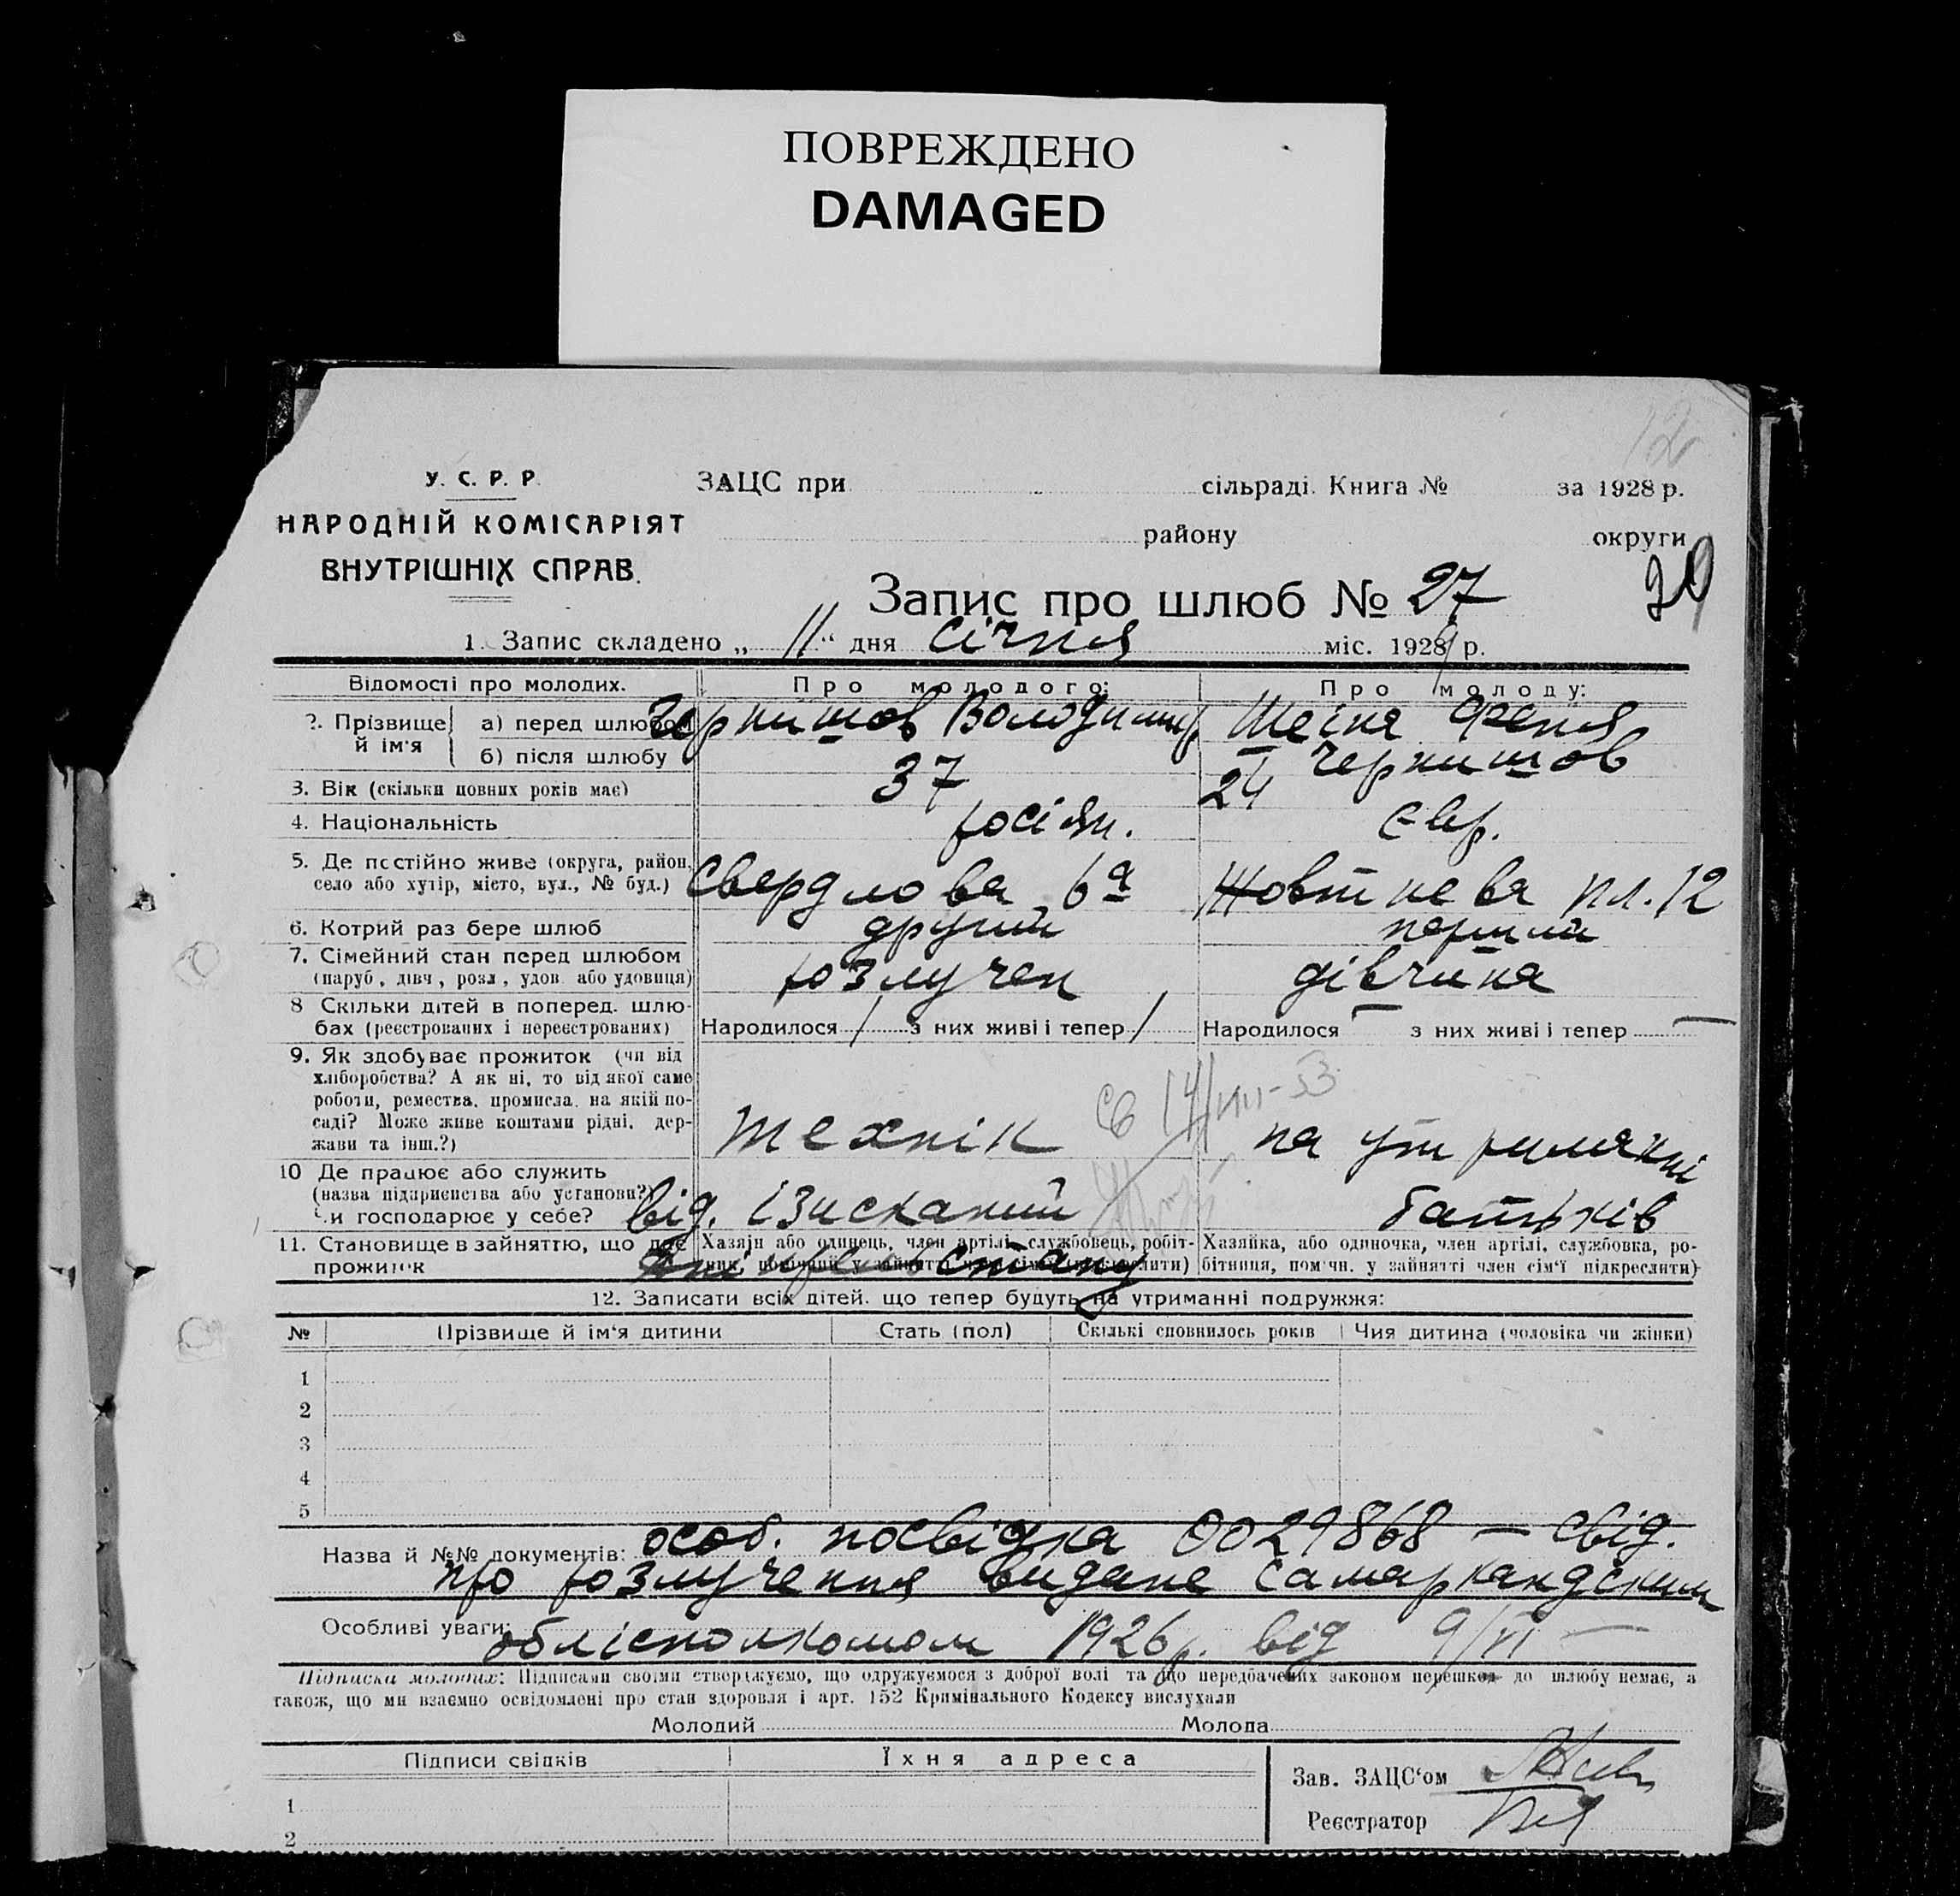 ПОВРЕЖДЕНО
DAMAGED
12
У. С. Р. Р.
НАРОДНІЙ КОМІСАРІЯТ
ВНУТРІШНІХ СПРАВ.
ЗАЦС при сільраді. Книга № за 1928 р.
району округи
Запис про шлюб № 27
29
1. Запис складено „ 11 “ дня січня міс. 1929 р.
Відомості про молодих. Про молодого: Про молоду:
2. Прізвище й ім'я
а) перед шлюбом Чернишов Володимир Шеіна Феня
б) після шлюбу Чернишов
3. Вік (скільки повних років має) 37 24
4. Національність росіян. Євр.
5. Де постійно живе (округа, район, село або хутір, місто, вул., № буд.) Свердлова 6а Жовтнева пл. 12
6. Котрий раз бере шлюб другий перший
7. Сімейний стан перед шлюбом (паруб., дівч., розл., удов. або удовиця) розлучен дівчина
8 Скільки дітей в поперед. шлюбах (реєстрованих і нереєстрованих) Народилося / з них живі і тепер / Народилося — з них живі і тепер —
9. Як здобуває прожиток (чи від
хліборобства? А як ні, то від якої саме
роботи, ремества, промисла, на якій по-
саді? Може живе коштами рідні, дер-
жави та інш.?) технік на утриманні
св 14/VIII-53
10 Де працює або служить
(назва підприємства або установи?)
Чи господарює у себе? від. ізисканий батьків
11. Становище в зайняттю, що дає прожиток
Хазяїн або одинець, член артілі, службовець, робіт-
ник, помічний у зайнятті член сім'ї підкреслити)
Хазяйка, або одиночка, член артілі, службовка, ро-
бітниця, пом'чн. у зайнятті член сім'ї підкреслити)
12. Записати всіх дітей, що тепер будуть на утриманні подружжя:
№ Прізвище й ім'я дитини Стать (пол) Скількі сповнилось років Чия дитина (чоловіка чи жінки)
1
2
3
4
5
Назва й №№ документів: особ. посвідка 0029868 — свід.
про розлучення видане Самаркандским
Особливі уваги: облісполкомом 1926 р. від 9/VI —
Підписка молодих: Підписами своїми стверджуємо, що одружуємося з доброї волі та що передбачених законом перешкод до шлюбу немає, а
також, що ми взаємно освідомлені про стан здоровля і арт. 152 Кримінального Кодексу вислухали
Молодий Молода
Підписи свідків Їхня адреса
Зав. ЗАЦС'ом
Реєстратор
1
2